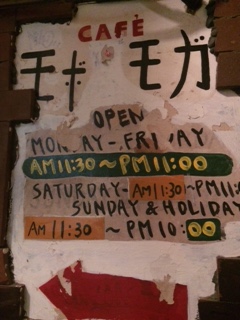 CAFÈ
モボ・モガ
OPEN
MONDAY-FRIDAY
AM11:30~PM11:00
SATURDAY-AM11:30~PM11:
SUNDAY & HOLIDAY
AM 11:30 ~ PM 10:00